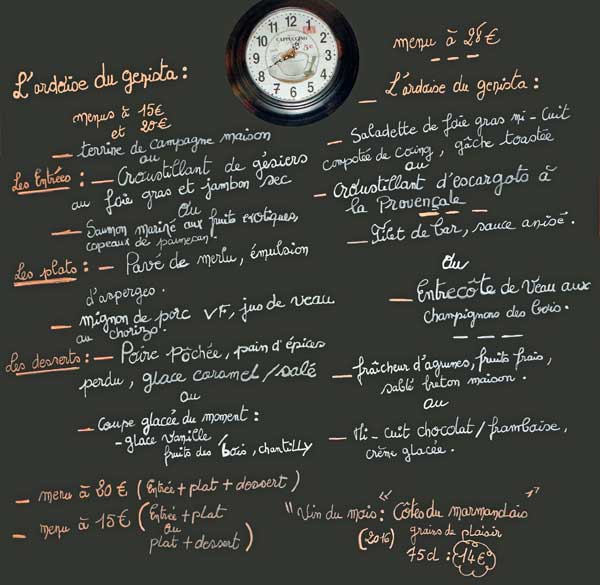 L'ardoise du genista :
menus à 15€
et 20€
— terrine de campagne maison
ou
Les Entrées : — Croustillant de gésiers
au foie gras et jambon sec
ou
— Saumon mariné aux fruits exotiques,
copeaux de parmesan.
Les plats : — Pavé de merlu, émulsion
d'asperges.
— mignon de porc VF, jus de veau
au chorizo.
Les desserts : — Poire Pôchée, pain d'épices
perdu, glace caramel/salé
ou
— Coupe glacée du moment :
- glace vanille
fruits des bois, chantilly
— menu à 20€ (Entrée + plat + dessert)
— menu à 15€ (Entrée + plat
ou
plat + dessert)
CAPPUCCINO
12 1 2 3 4 5 6 7 8 9 10 11
menu à 28€
— L'ardoise du genista :
— Saladette de foie gras mi-cuit
compotée de coing, gâche toastée
ou
— Croustillant d'escargots à
la Provençale
— Filet de bar, sauce anisé.
ou
— Entrecôte de Veau aux
champignons des bois.
— fraîcheur d'agrumes, fruits frais,
sablé breton maison.
ou
— Mi-cuit chocolat/framboise,
crème glacée.
"Vin du mois : "Côtes du marmandais"
(2016) grains de plaisir
75cl : 14€